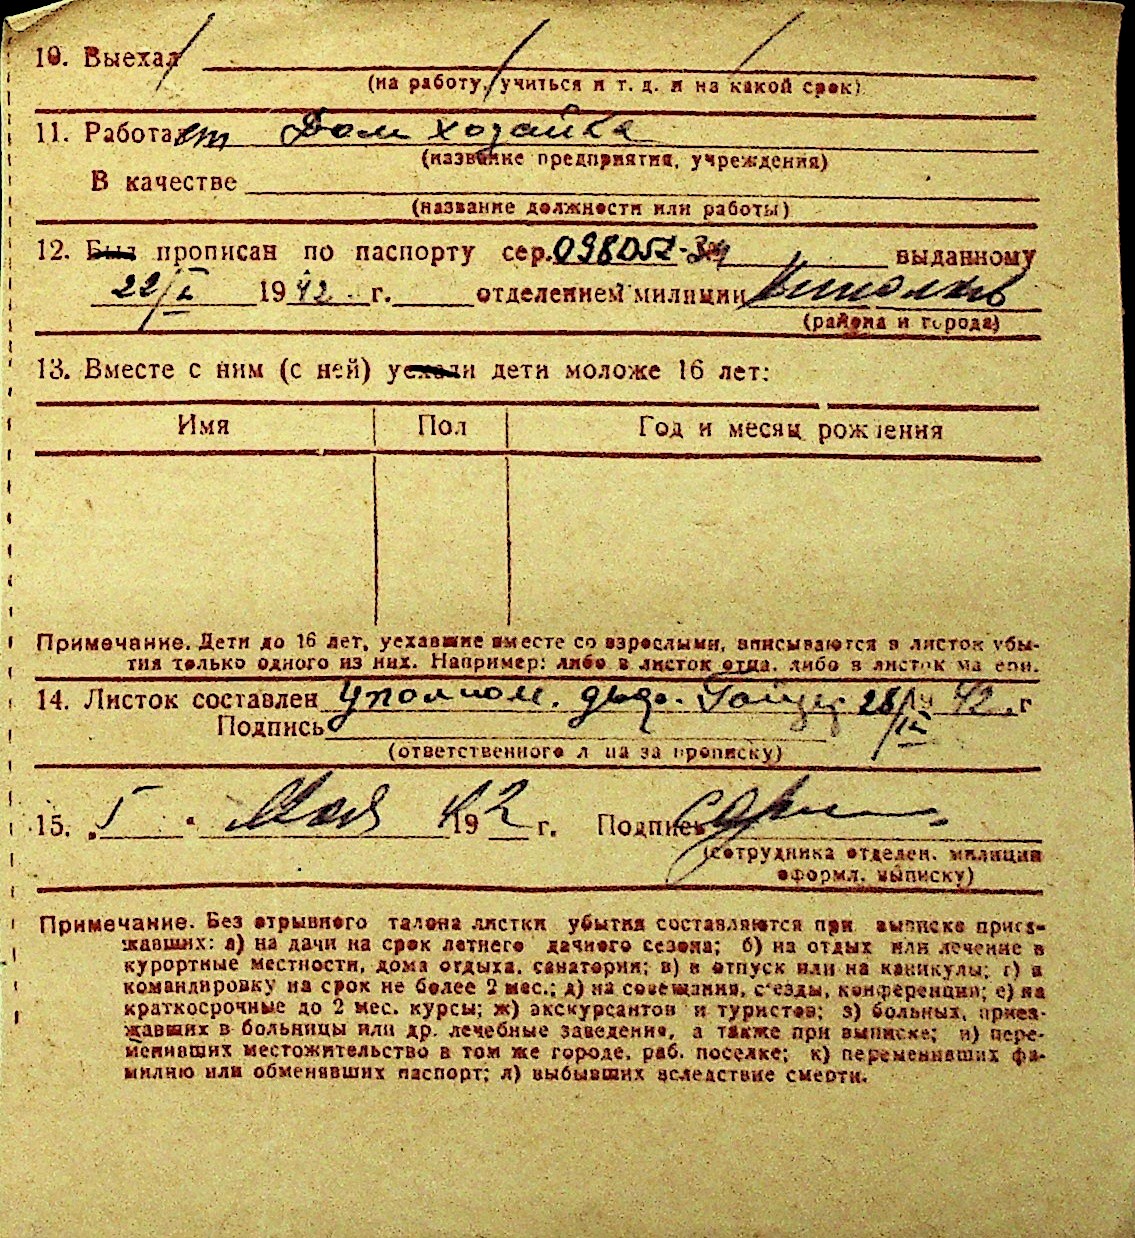 10. Выехал
(на работу, учиться и т. д. и на какой срок)
11. Работает Дом хозайка
(название предприятия, учреждения)
В качестве
(название должности или работы)
12. Был прописан по паспорту сер. 098052 выданному
22/I 1942 г. отделением милиции
(района и города)
13. Вместе с ним (с ней) уехали дети моложе 16 лет:
Имя Пол Год и месяц рождения
Примечание. Дети до 16 лет, уехавшие вместе со взрослыми, вписываются в листок убы-
тия только одного из них. Например: либо в листок отца, либо в листок ма ери.
14. Листок составлен Уполном. 28/IV 42 г
Подпись
(ответственного л ца за прописку)
15. „5“ Мая 1942 г. Подпись
(сотрудника отделен. милиции
оформл. выписку)
Примечание. Без отрывного талона листки убытия составляются при выписке приез-
жавших: а) на дачи на срок летнего дачного сезона; б) на отдых или лечение в
курортные местности, дома отдыха, санатории; в) в отпуск или на каникулы; г) в
командировку на срок не более 2 мес.; д) на совещания, с'езды, конференции; е) на
краткосрочные до 2 мес. курсы; ж) экскурсантов и туристов; з) больных, приез-
жавших в больницы или др. лечебные заведения, а также при выписке; и) пере-
менивших местожительство в том же городе, раб. поселке; к) переменивших фа-
милию или обменявших паспорт; л) выбывших вследствие смерти.